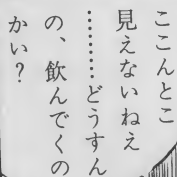 ここんとこ
見えないねえ
………どうすん
の、飲んでくの
かい？